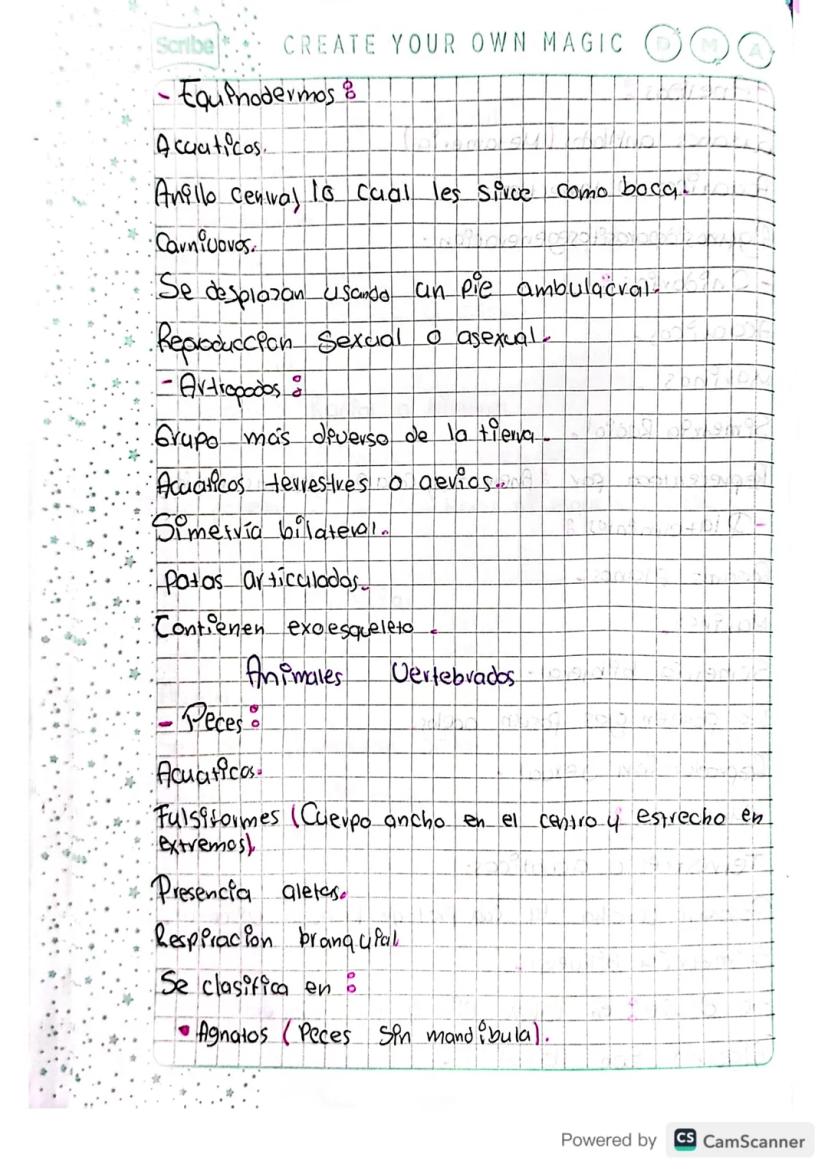 Scribe CREATE YOUR OWN MAGIC D M A
- Equinodermos:
Acuaticos.
Anillo cenral lo cual les sirve como boca.
Carnivoros.
Se desplazan usando un pie ambulacral.
Reproduccion sexual o asexual.
- Artropodos:
Grupo más diverso de la tierra.
Acuaticos terrestres o aerios.
Simetría bilateral.
Patas articuladas.
Contienen exoesqueleto.
Animales Vertebrados
- Peces:
Acuaticos.
Fulsiformes (Cuerpo ancho en el centro y estrecho en
extremos).
Presencia aletas.
Respiracion branquial
Se clasifica en:
• Agnatos (Peces sin mandibula).
Powered by CS CamScanner